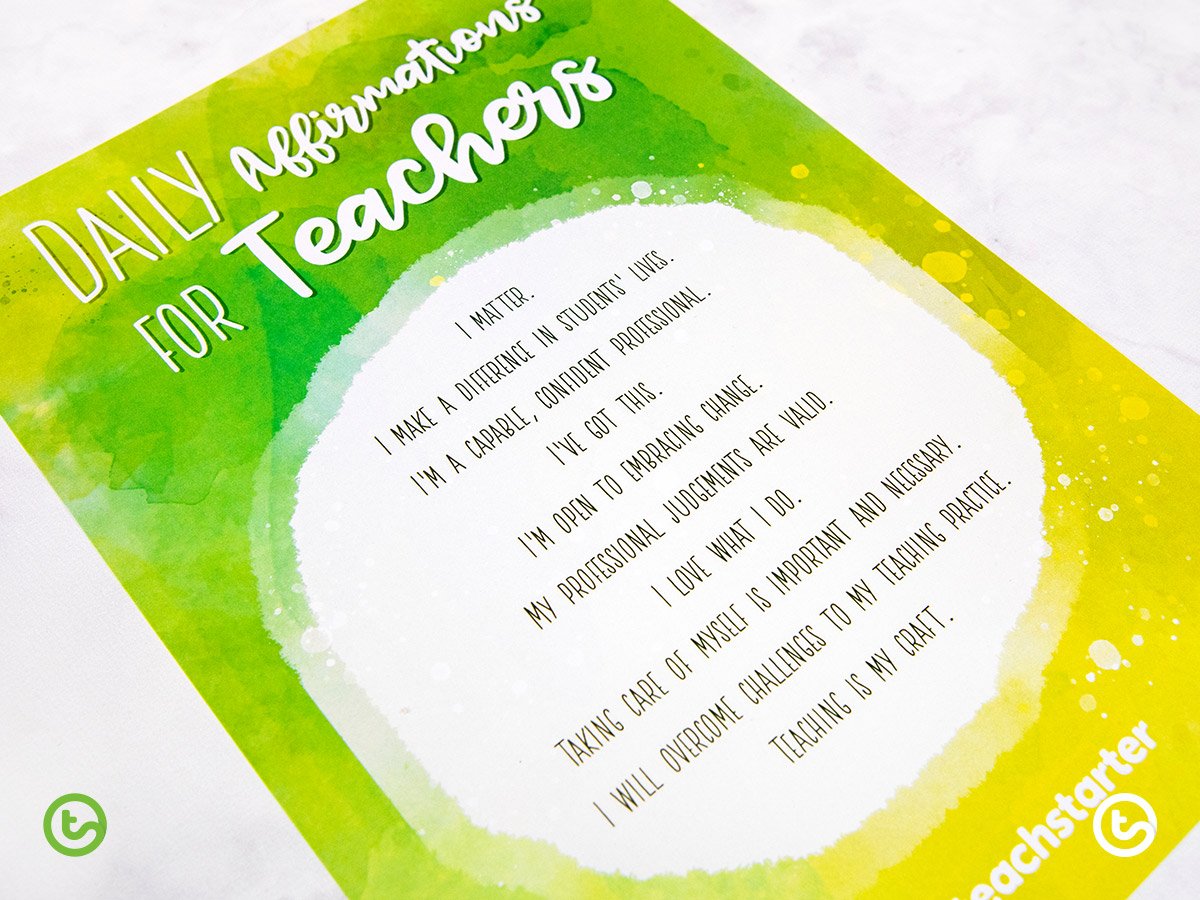 DAILY Affirmations
FOR Teachers
I MATTER.
I MAKE A DIFFERENCE IN STUDENTS' LIVES.
I'M A CAPABLE, CONFIDENT PROFESSIONAL.
I'VE GOT THIS.
I'M OPEN TO EMBRACING CHANGE.
MY PROFESSIONAL JUDGEMENTS ARE VALID.
I LOVE WHAT I DO.
TAKING CARE OF MYSELF IS IMPORTANT AND NECESSARY.
I WILL OVERCOME CHALLENGES TO MY TEACHING PRACTICE.
TEACHING IS MY CRAFT.
teachstarter